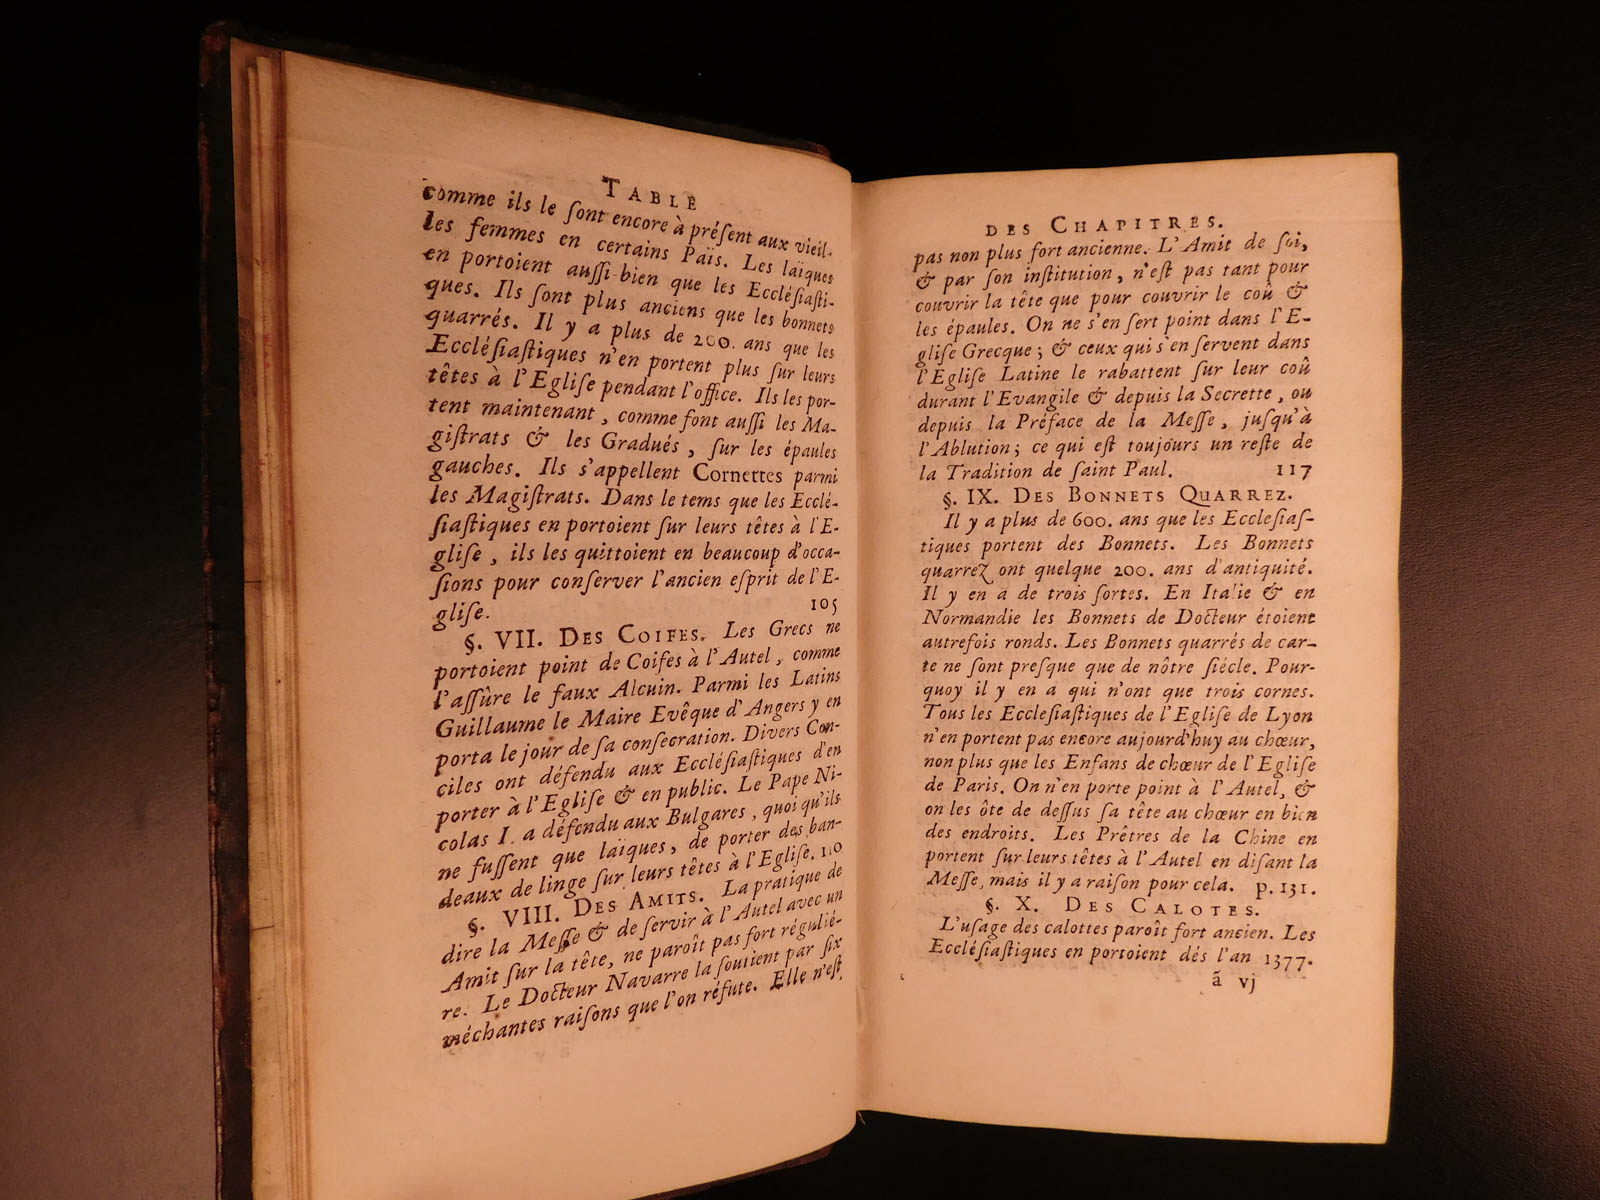 TABLE
comme ils le ſont encore à préſent aux vieil-
les femmes en certains Païs. Les laïques
en portoient auſſi-bien que les Eccléſiaſti-
ques. Ils ſont plus anciens que les bonnets
quarrés. Il y a plus de 200. ans que les
Eccléſiaſtiques n'en portent plus ſur leurs
têtes à l'Egliſe pendant l'office. Ils les por-
tent maintenant, comme font auſſi les Ma-
giſtrats & les Gradués, ſur les épaules
gauches. Ils s'appellent Cornettes parmi
les Magiſtrats. Dans le tems que les Ecclé-
ſiaſtiques en portoient ſur leurs têtes à l'E-
gliſe, ils les quittoient en beaucoup d'occa-
ſions pour conſerver l'ancien eſprit de l'E-
gliſe. 105
§. VII. DES COIFES. Les Grecs ne
portoient point de Coifes à l'Autel, comme
l'aſſûre le faux Alcuin. Parmi les Latins
Guillaume le Maire Evêque d'Angers y en
porta le jour de ſa conſecration. Divers Con-
ciles ont défendu aux Eccléſiaſtiques d'en
porter à l'Egliſe & en public. Le Pape Ni-
colas I. a défendu aux Bulgares, quoi qu'ils
ne fuſſent que laïques, de porter des ban-
deaux de linge ſur leurs têtes à l'Egliſe. 110
§. VIII. DES AMITS. La pratique de
dire la Meſſe & de ſervir à l'Autel avec un
Amit ſur la tête, ne paroît pas fort régulié-
re. Le Docteur Navarre la ſoutient par ſix
méchantes raiſons que l'on réfute. Elle n'eſt
DES CHAPITRES.
pas non plus fort ancienne. L'Amit de ſoi,
& par ſon inſtitution, n'eſt pas tant pour
couvrir la tête que pour couvrir le coû &
les épaules. On ne s'en ſert point dans l'E-
gliſe Grecque; & ceux qui s'en ſervent dans
l'Egliſe Latine le rabattent ſur leur coû
durant l'Evangile & depuis la Secrette, ou
depuis la Préface de la Meſſe, juſqu'à
l'Ablution; ce qui eſt toujours un reſte de
la Tradition de ſaint Paul. 117
§. IX. DES BONNETS QUARREZ.
Il y a plus de 600. ans que les Eccleſiaſ-
tiques portent des Bonnets. Les Bonnets
quarrez ont quelque 200. ans d'antiquité.
Il y en a de trois ſortes. En Italie & en
Normandie les Bonnets de Docteur étoient
autrefois ronds. Les Bonnets quarrés de car-
te ne ſont preſque que de nôtre ſiécle. Pour-
quoy il y en a qui n'ont que trois cornes.
Tous les Eccleſiaſtiques de l'Egliſe de Lyon
n'en portent pas encore aujourd'huy au chœur,
non plus que les Enfans de chœur de l'Egliſe
de Paris. On n'en porte point à l'Autel, &
on les ôte de deſſus ſa tête au chœur en bien
des endroits. Les Prêtres de la Chine en
portent ſur leurs têtes à l'Autel en diſant la
Meſſe, mais il y a raiſon pour cela. p. 131.
§. X. DES CALOTES.
L'uſage des calottes paroît fort ancien. Les
Eccléſiaſtiques en portoient dés l'an 1377.
ã vj